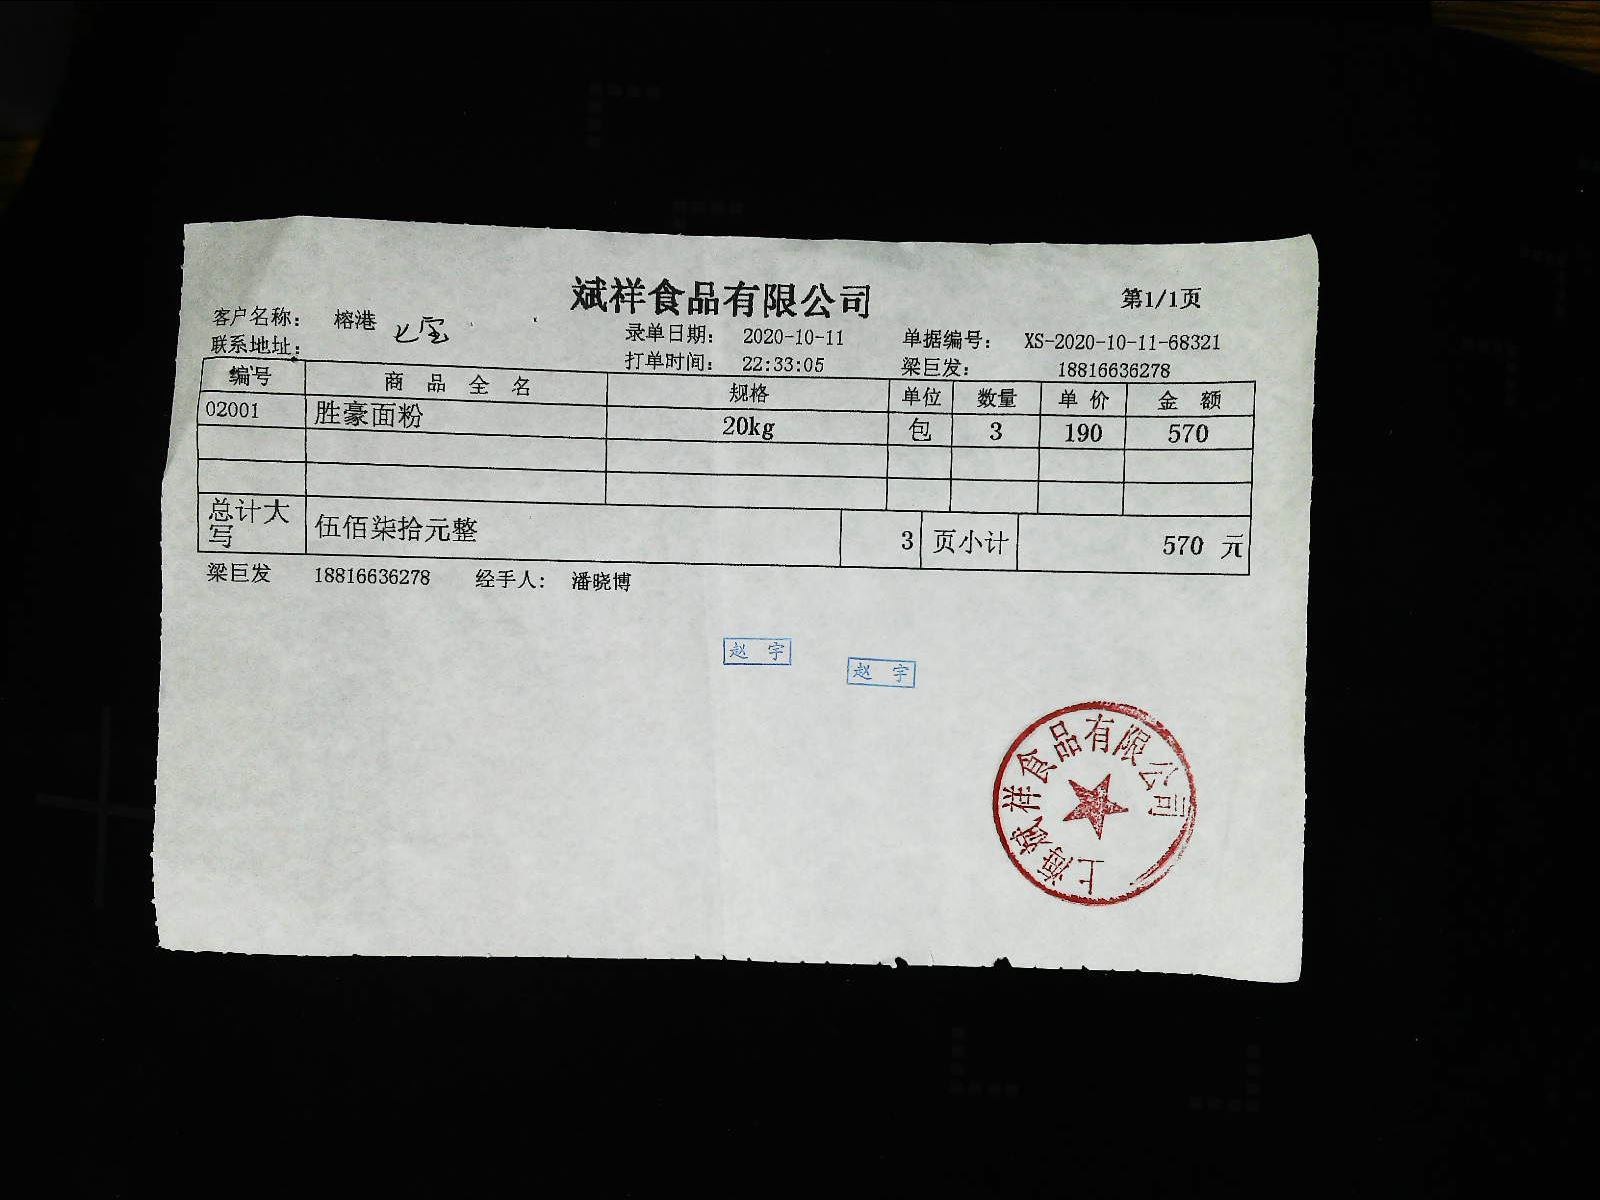 斌祥食品有限公司
第1/1页
客户名称： 榕港 七宝
录单日期： 2020-10-11 单据编号： XS-2020-10-11-68321
联系地址：
打单时间： 22:33:05 梁巨发： 18816636278
编号 商 品 全 名 规格 单位 数量 单 价 金 额
02001 胜豪面粉 20kg 包 3 190 570
总计大写 伍佰柒拾元整 3 页小计 570 元
梁巨发 18816636278 经手人： 潘晓博
赵 宇
赵 宇
上海斌祥食品有限公司